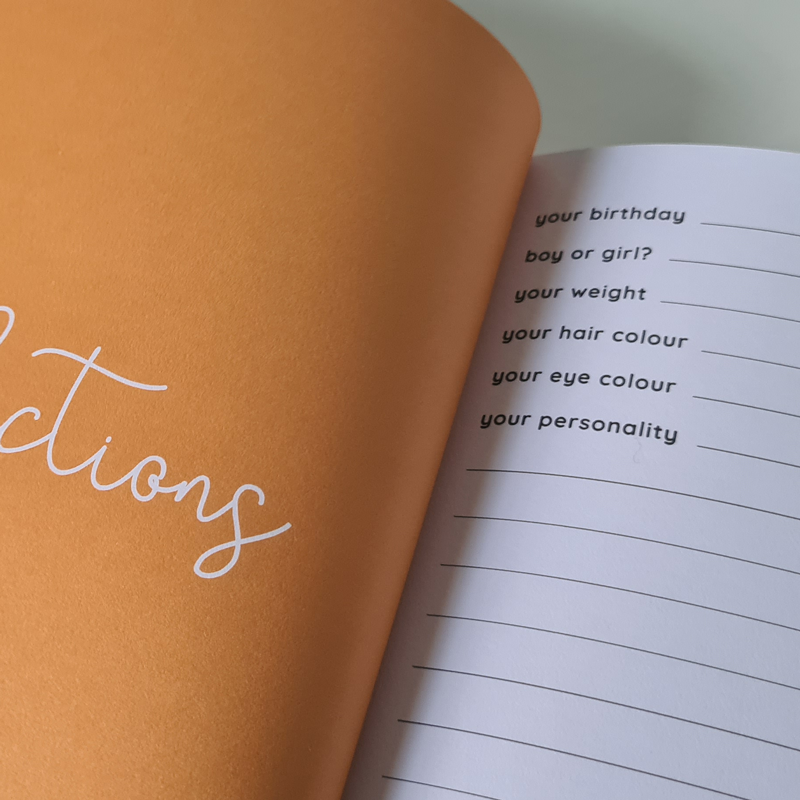 ctions
your birthday
boy or girl?
your weight
your hair colour
your eye colour
your personality